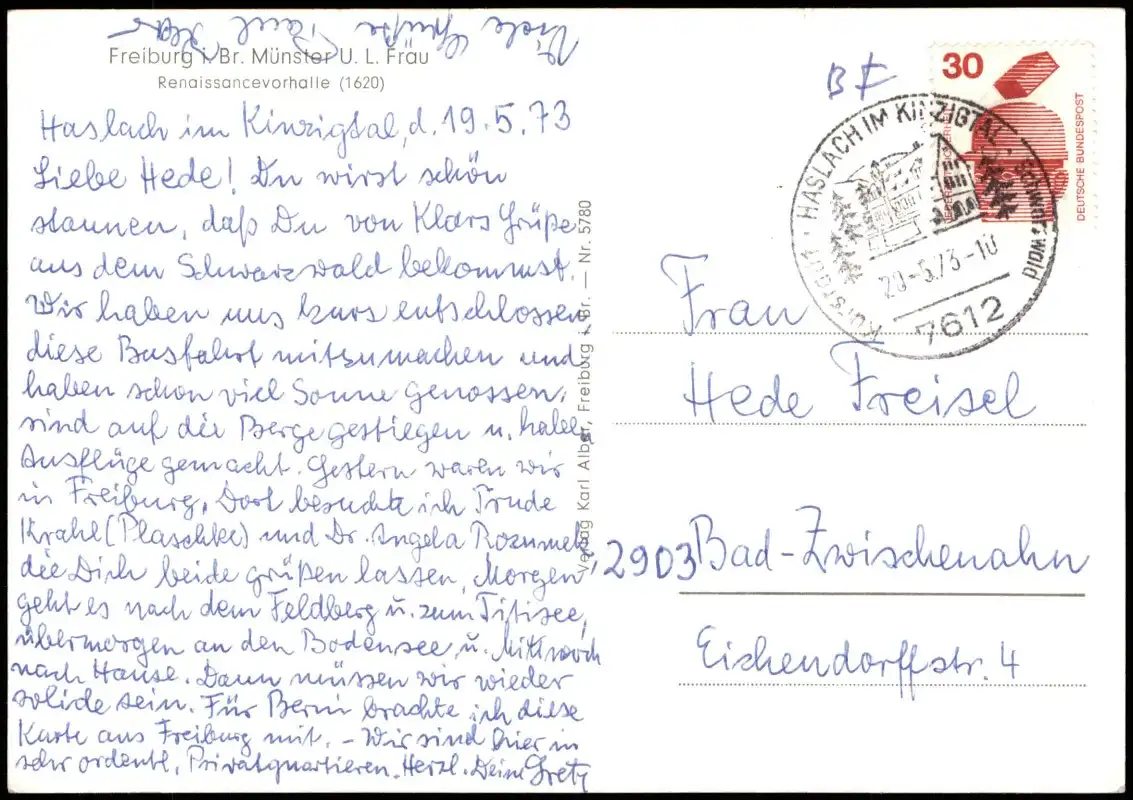 Viele Grüße Paul Klar
Freiburg i. Br. Münster U. L. Frau
Renaissancevorhalle (1620)
Haslach im Kinzigtal, d. 19.5.73
Liebe Hede! Du wirst schön
staunen, daß Du von Klars Grüße
aus dem Schwarzwald bekommst.
Wir haben uns kurz entschlossen
diese Busfahrt mitzumachen und
haben schon viel Sonne genossen,
sind auf die Berge gestiegen u. habe
Ausflüge gemacht. Gestern waren wir
in Freiburg. Dort besuchte ich Trude
Krahl (Plaschke) und Dr. Angela
die Dich beide grüßen lassen. Morgen
geht es nach dem Feldberg u. zum Titisee,
übermorgen an den Bodensee u. Mittwoch
nach Hause. Dann müssen wir wieder
solide sein. Für brachte ich diese
Karte aus Freiburg mit. – Wir sind hier in
sehr ordentl. Privatquartieren. Herzl. Deine Gretl
Verlag Karl Alber, Freiburg i. Br. — Nr. 5780
BF
30
DEUTSCHE BUNDESPOST
KURSTADT · HASLACH IM KINZIGTAL · Schwarzwald
20.-5.73-10
7612
Frau
Hede Freisel
2903 Bad-Zwischenahn
Eichendorffstr. 4